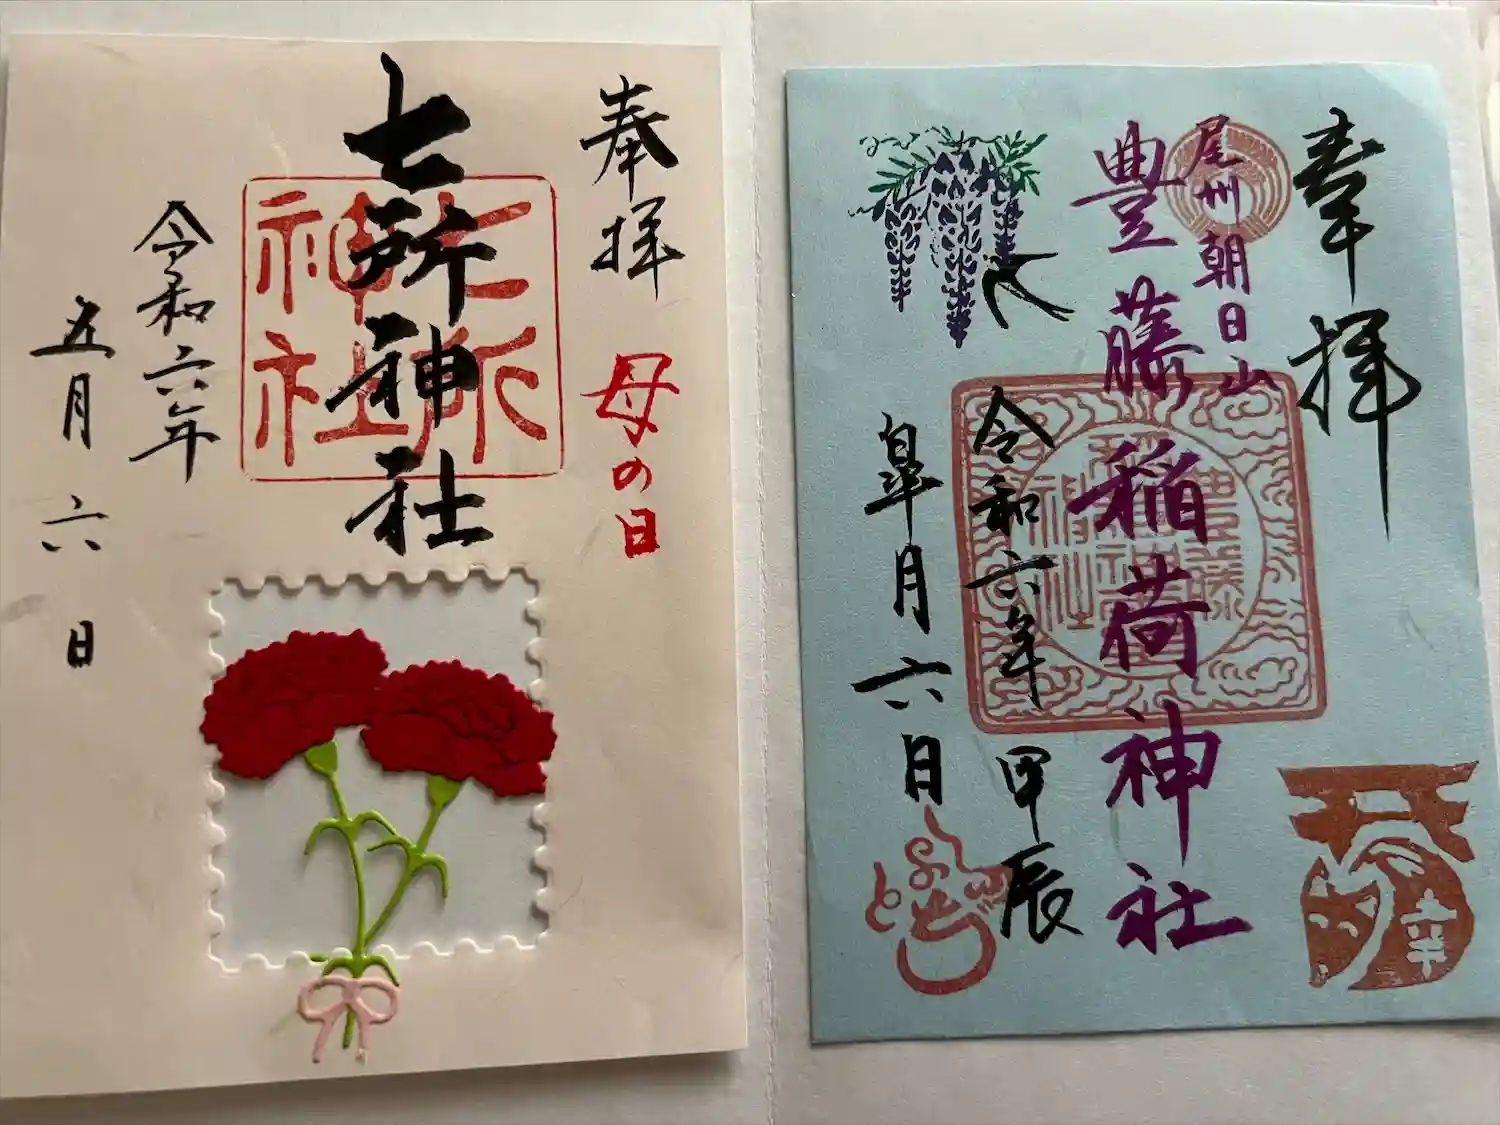 奉拝
母の日
七所神社
七所神社
令和六年
五月六日
奉拝
尾州朝日山
豊藤稲荷神社
豊藤稲荷神社
令和六年甲辰
皐月六日